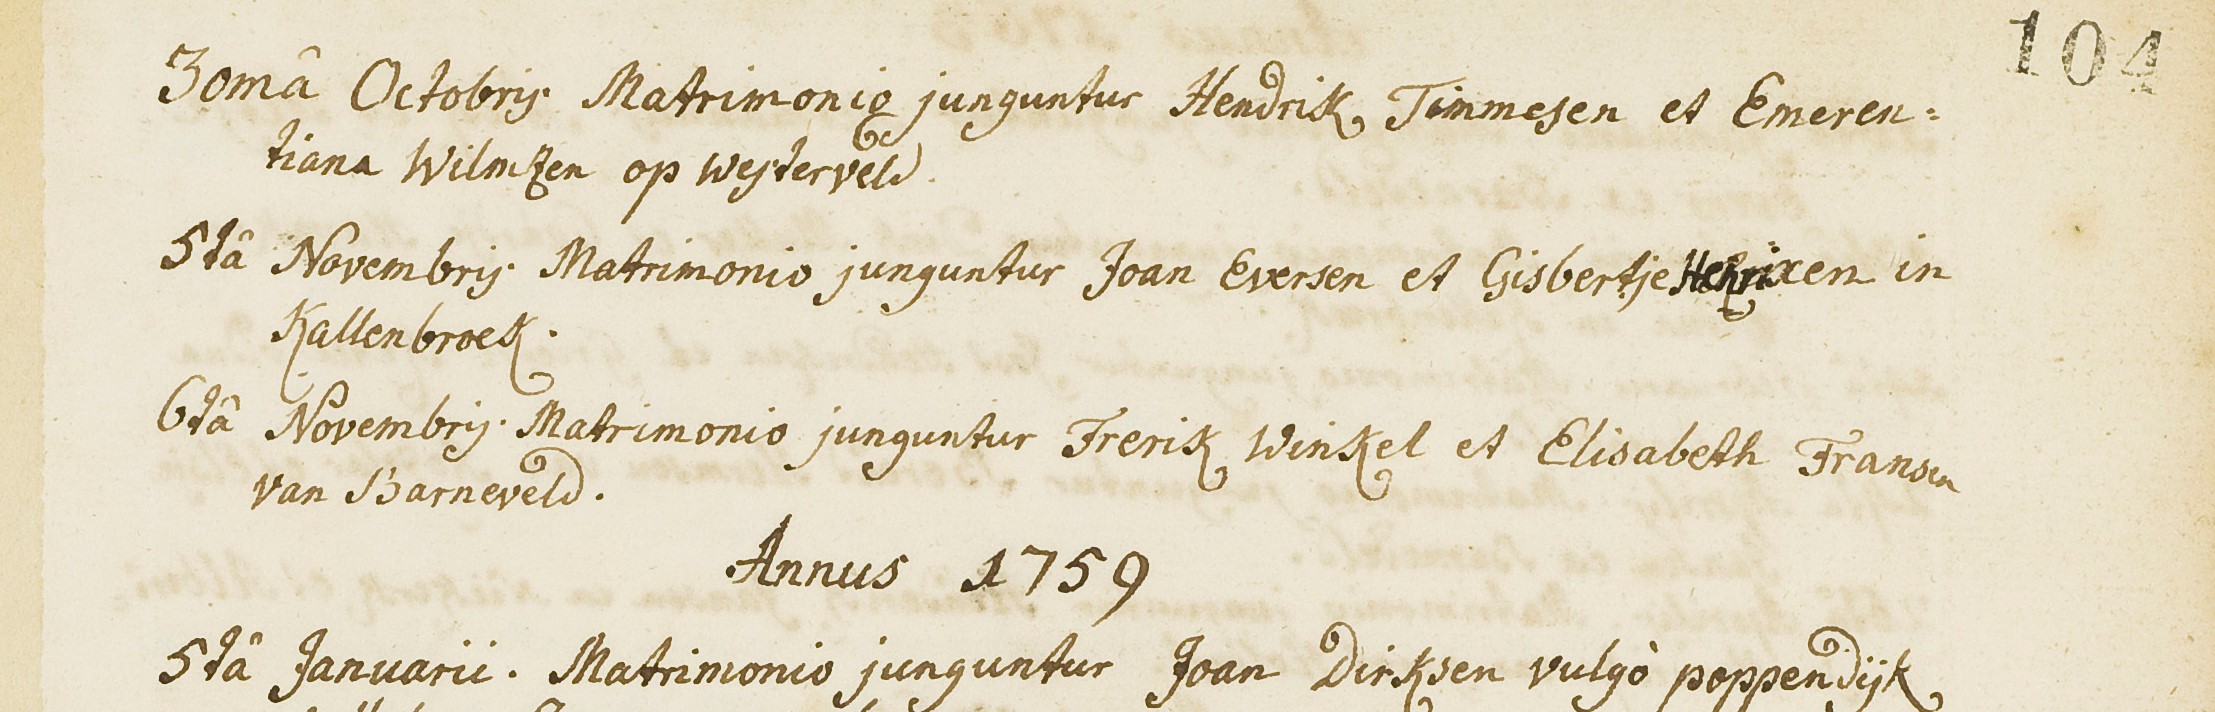 104
30mâ Octobris. Matrimonio junguntur Hendrik Timmesen et Emeren=
tiana Wilmzen op Westerveld.
5tâ Novembris. Matrimonio junguntur Joan Eversen et Gisbertje Henrixen in
Kallenbroek.
6tâ Novembris. Matrimonio junguntur Frerik Winkel et Elisabeth Fransen
van Barneveld.
Annus 1759
5tâ Januarii. Matrimonio junguntur Joan Dirksen vulgò poppendijk